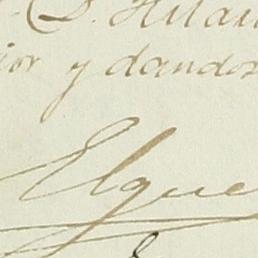 D. Hilari
ior y dandos
Elgue